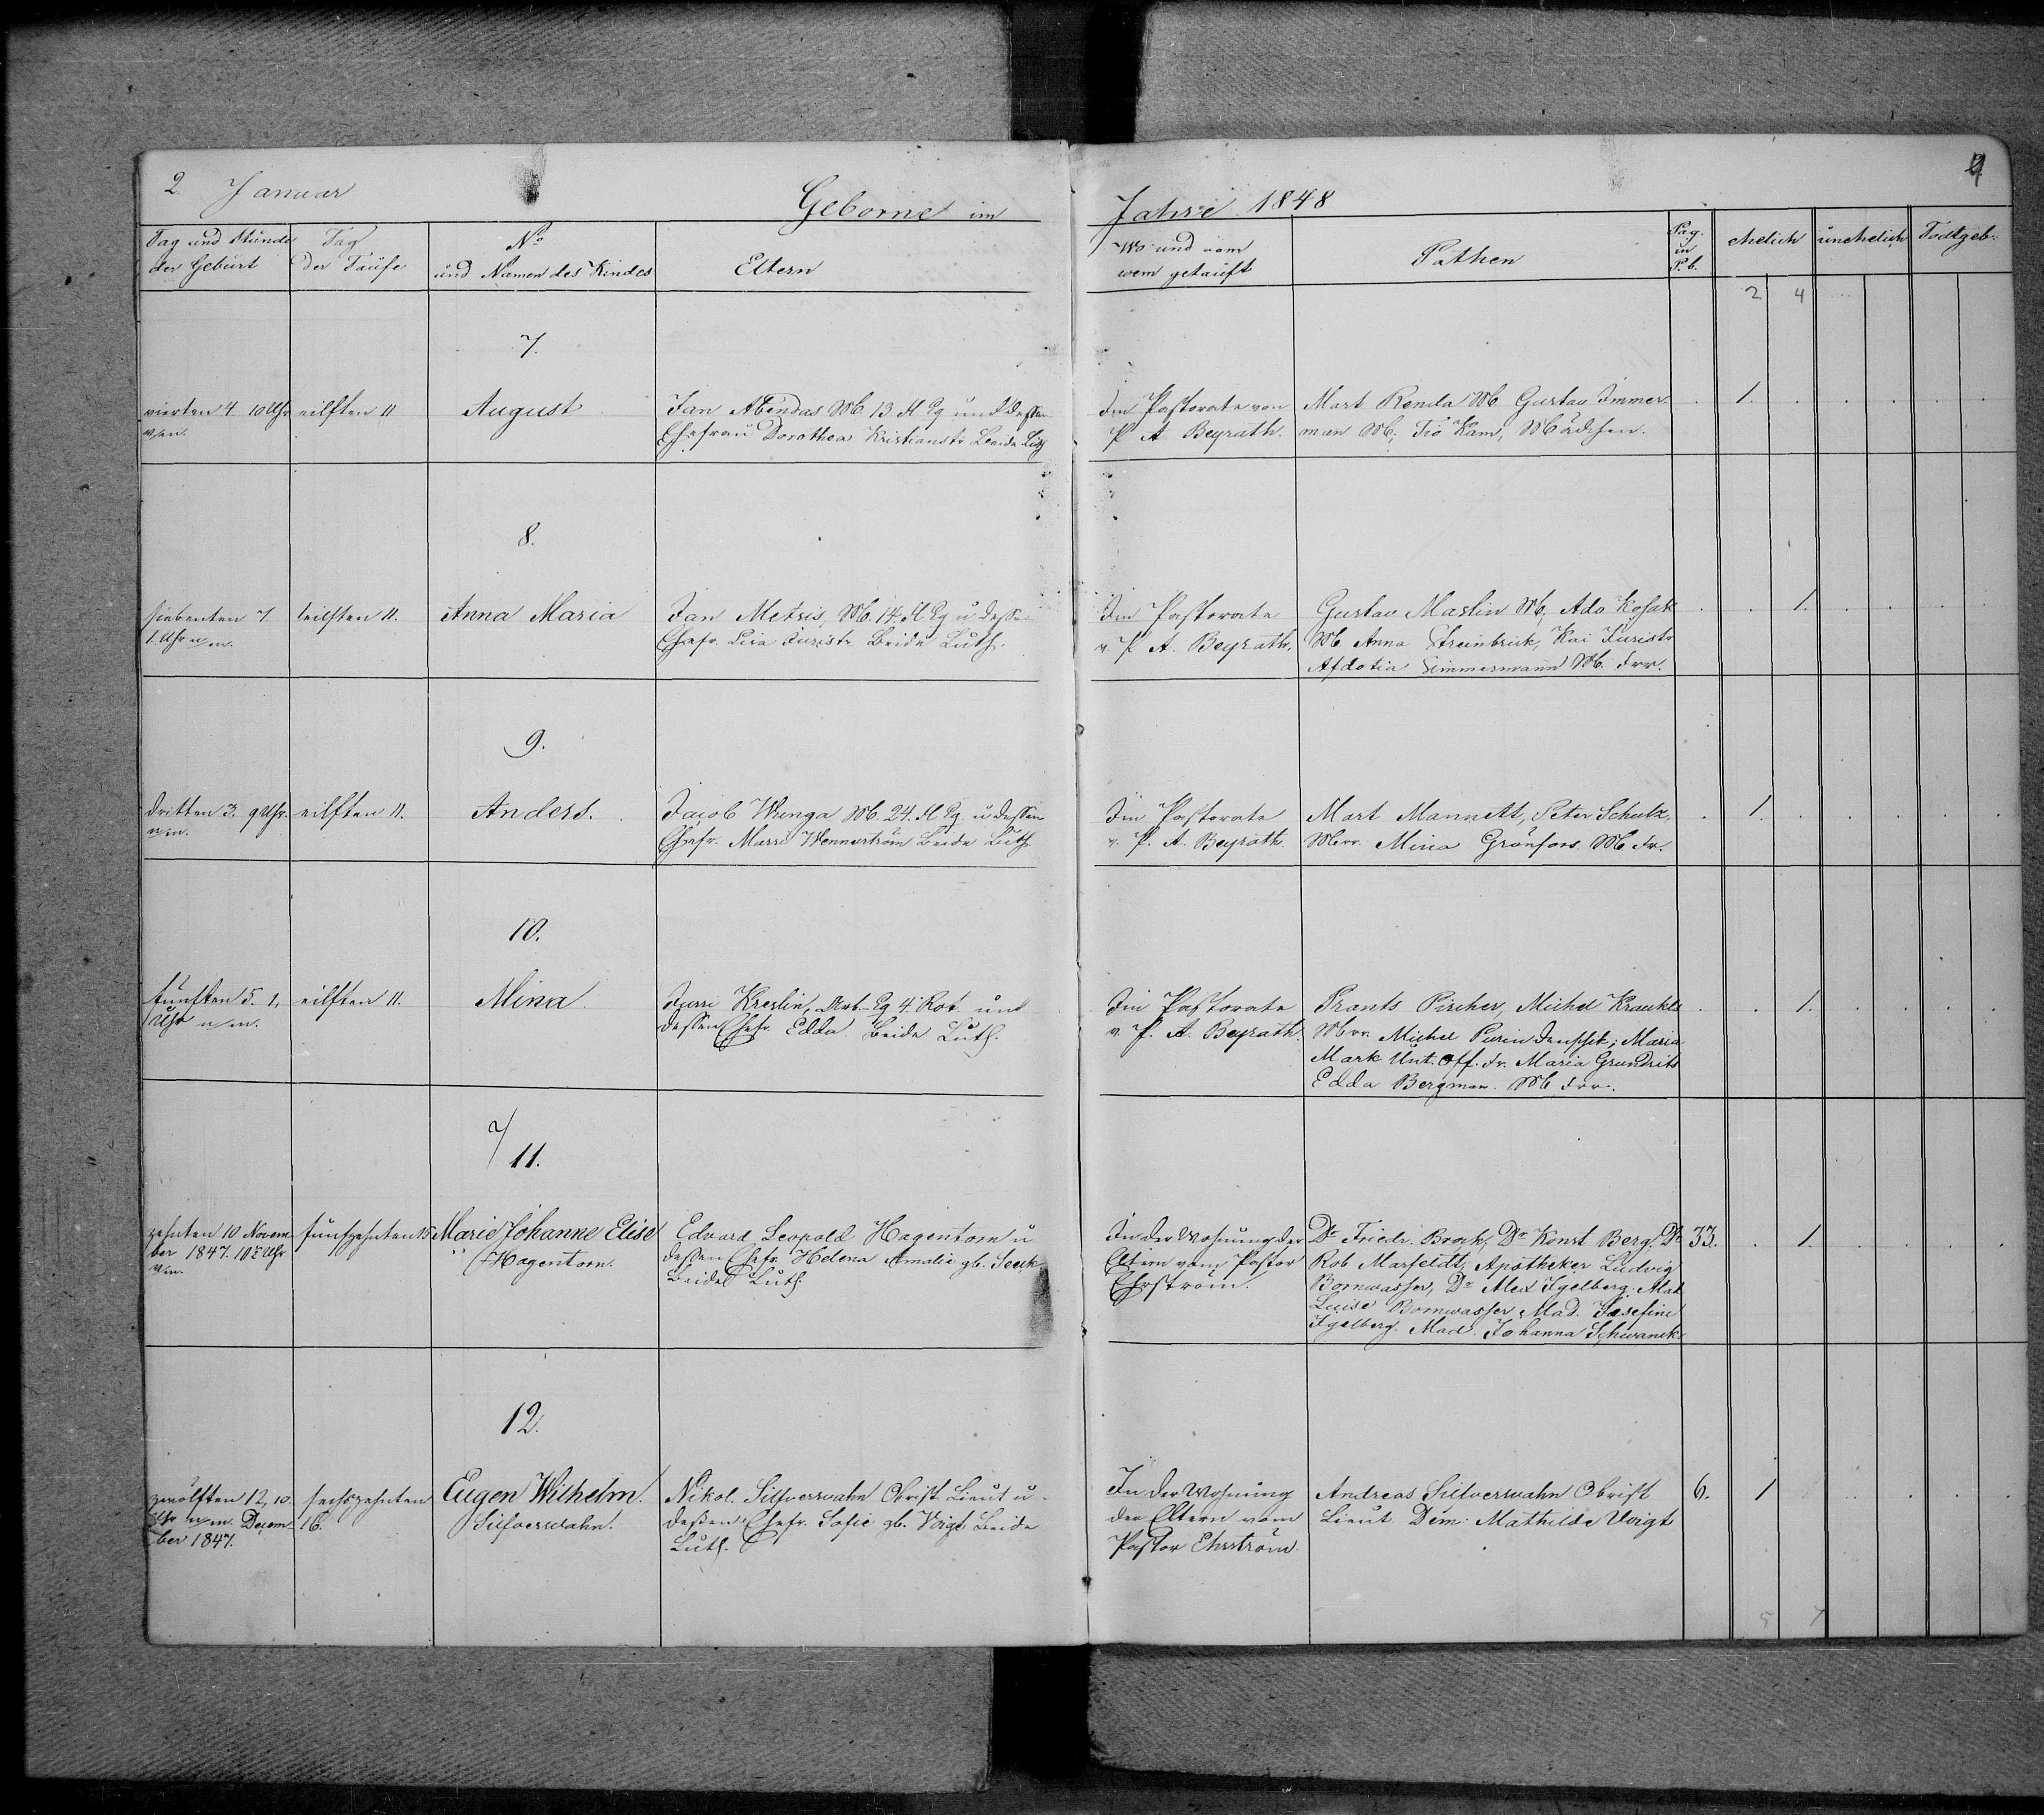 2 Januar
Geborne im
Jahre 1848
Tag und Stunde
der Geburt
Tag
der Taufe
No
und Namen des Kindes
Eltern
Wo und vom
wem getauft
Pathen
Pag.
in
P. b.
ehelich
unehelich
Todtgeb.
2 4
7.
vierten 4. 10 Uhr
eilften 11
August
Jan Abendus Mb. 13. Eq und dessen
Ehefrau Dorothea Kristianstr Beide Luth
Im Pastorate von
P. A. Beyrath.
Mart Renda Mb Gustav Immer
man Mb; Tio Kam, Mädchen.
1.
8.
siebenten 7.
1. Uhr n/m.
eilften 11.
Anna Maria
Jan Metsis, Mb. 14. Eq u dessen
Ehefr. Lisa Juristr Beide Luth.
Im Pastorate
v. P. A. Beyrath.
Gustav Maslin Mb, Ado Kosak
Mb Anna Streinbrick, Kai Juristr
Afdotia Simmermann Mb. Frr.
1.
9.
dritten 3. 9 Uhr.
eilften 11.
Anders.
Jacob Wenga Mb. 24. Eq u dessen
Ehefr. Marri Wennerström Beide Luth
Im Pastorate
v. P. A. Beyrath.
Mart Mannett, Peter Schulz,
Mbrr. Mina Grönfors Mb Fr.
1.
10.
fünften 5. 1.
Uhr n/m.
eilften 11.
Mina
Jurri Kreslin, Arb. Eq 4. Rot. und
dessen Ehefr. Edda Beide Luth.
Im Pastorate
v. P. A. Beyrath.
Prants Pircher, Michel Kraukle
Mbrr. Michel Purin; Maria
Mark Unt. Off. Fr. Maria Grundrits
Edda Bergman Mb Frr.
1.
11.
zehnten 10 Novem
ber 1847. 10½ Uhr
fünfzehnten 15
Marie Johanne Elise
Hagentorn.
Edvard Leopold Hagentorn u
dessen Ehefr. Helena Amalie gb. Seek
Beide Luth
In der Wohnung der
Eltern vom Pastor
Ehrström.
Dr Friedr. Brock, Dr Konst Berg, Dr
Rob Marfeldt, Apotheker Ludvig
Bornwasser, Dr Alex Igelberg. Mad
Luise Bornwasser, Mad. Josefine
Igelberg. Mad. Johanna Schwanek.
33.
1.
12.
zwölften 12, 10.
Uhr n/m. Dezem
ber 1847.
sechszehnten
16.
Eugen Wilhelm.
Silfverswahn.
Nikol. Silfverswahn Obrist Lieut u
dessen Ehefr. Sofie gb. Voigt Beide
Luth.
In der Wohnung
der Eltern vom
Pastor Ehrström.
Andreas Silfverswahn Obrist
Lieut Dem: Mathilde Voigt
6.
1
5 7